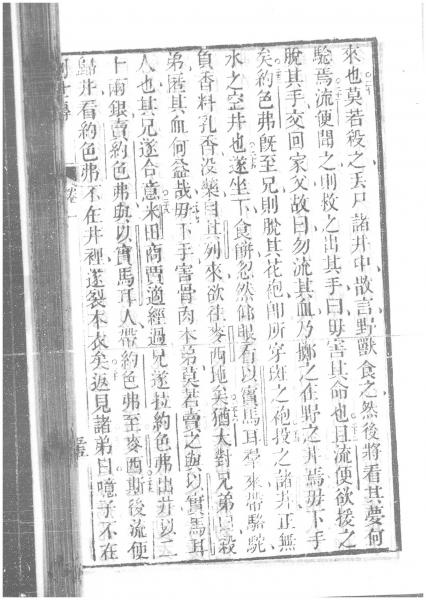 來也莫若殺之丟尸諸井中故言野獸食之然後將看其夢何
騐焉流便聞之則救之出其手曰毋害其命也且流便欲援之
脫其手交囘家父故曰勿流其血乃擲之在野之井焉毋下手
矣約色弗旣至兄則脫其花袍卽所穿斑之袍投之諸井正無
水之空井也遂坐下食餅忽然仰眼看以實馬耳羣來帶駱駝
負香料乳香沒藥自其列來欲往麥西地矣猶大對兄弟曰殺
弟匿其血何益哉毋下手害骨肉本弟莫若賣之與以實馬耳
人也其兄遂合意米田商賈適經過兄遂拉約色弗出井以二
十兩銀賣約色弗與以實馬耳人帶約色弗至麥西斯後流便
歸井看約色弗不在井裡遂裂本衣矣返見諸弟曰噫子不在
卷一